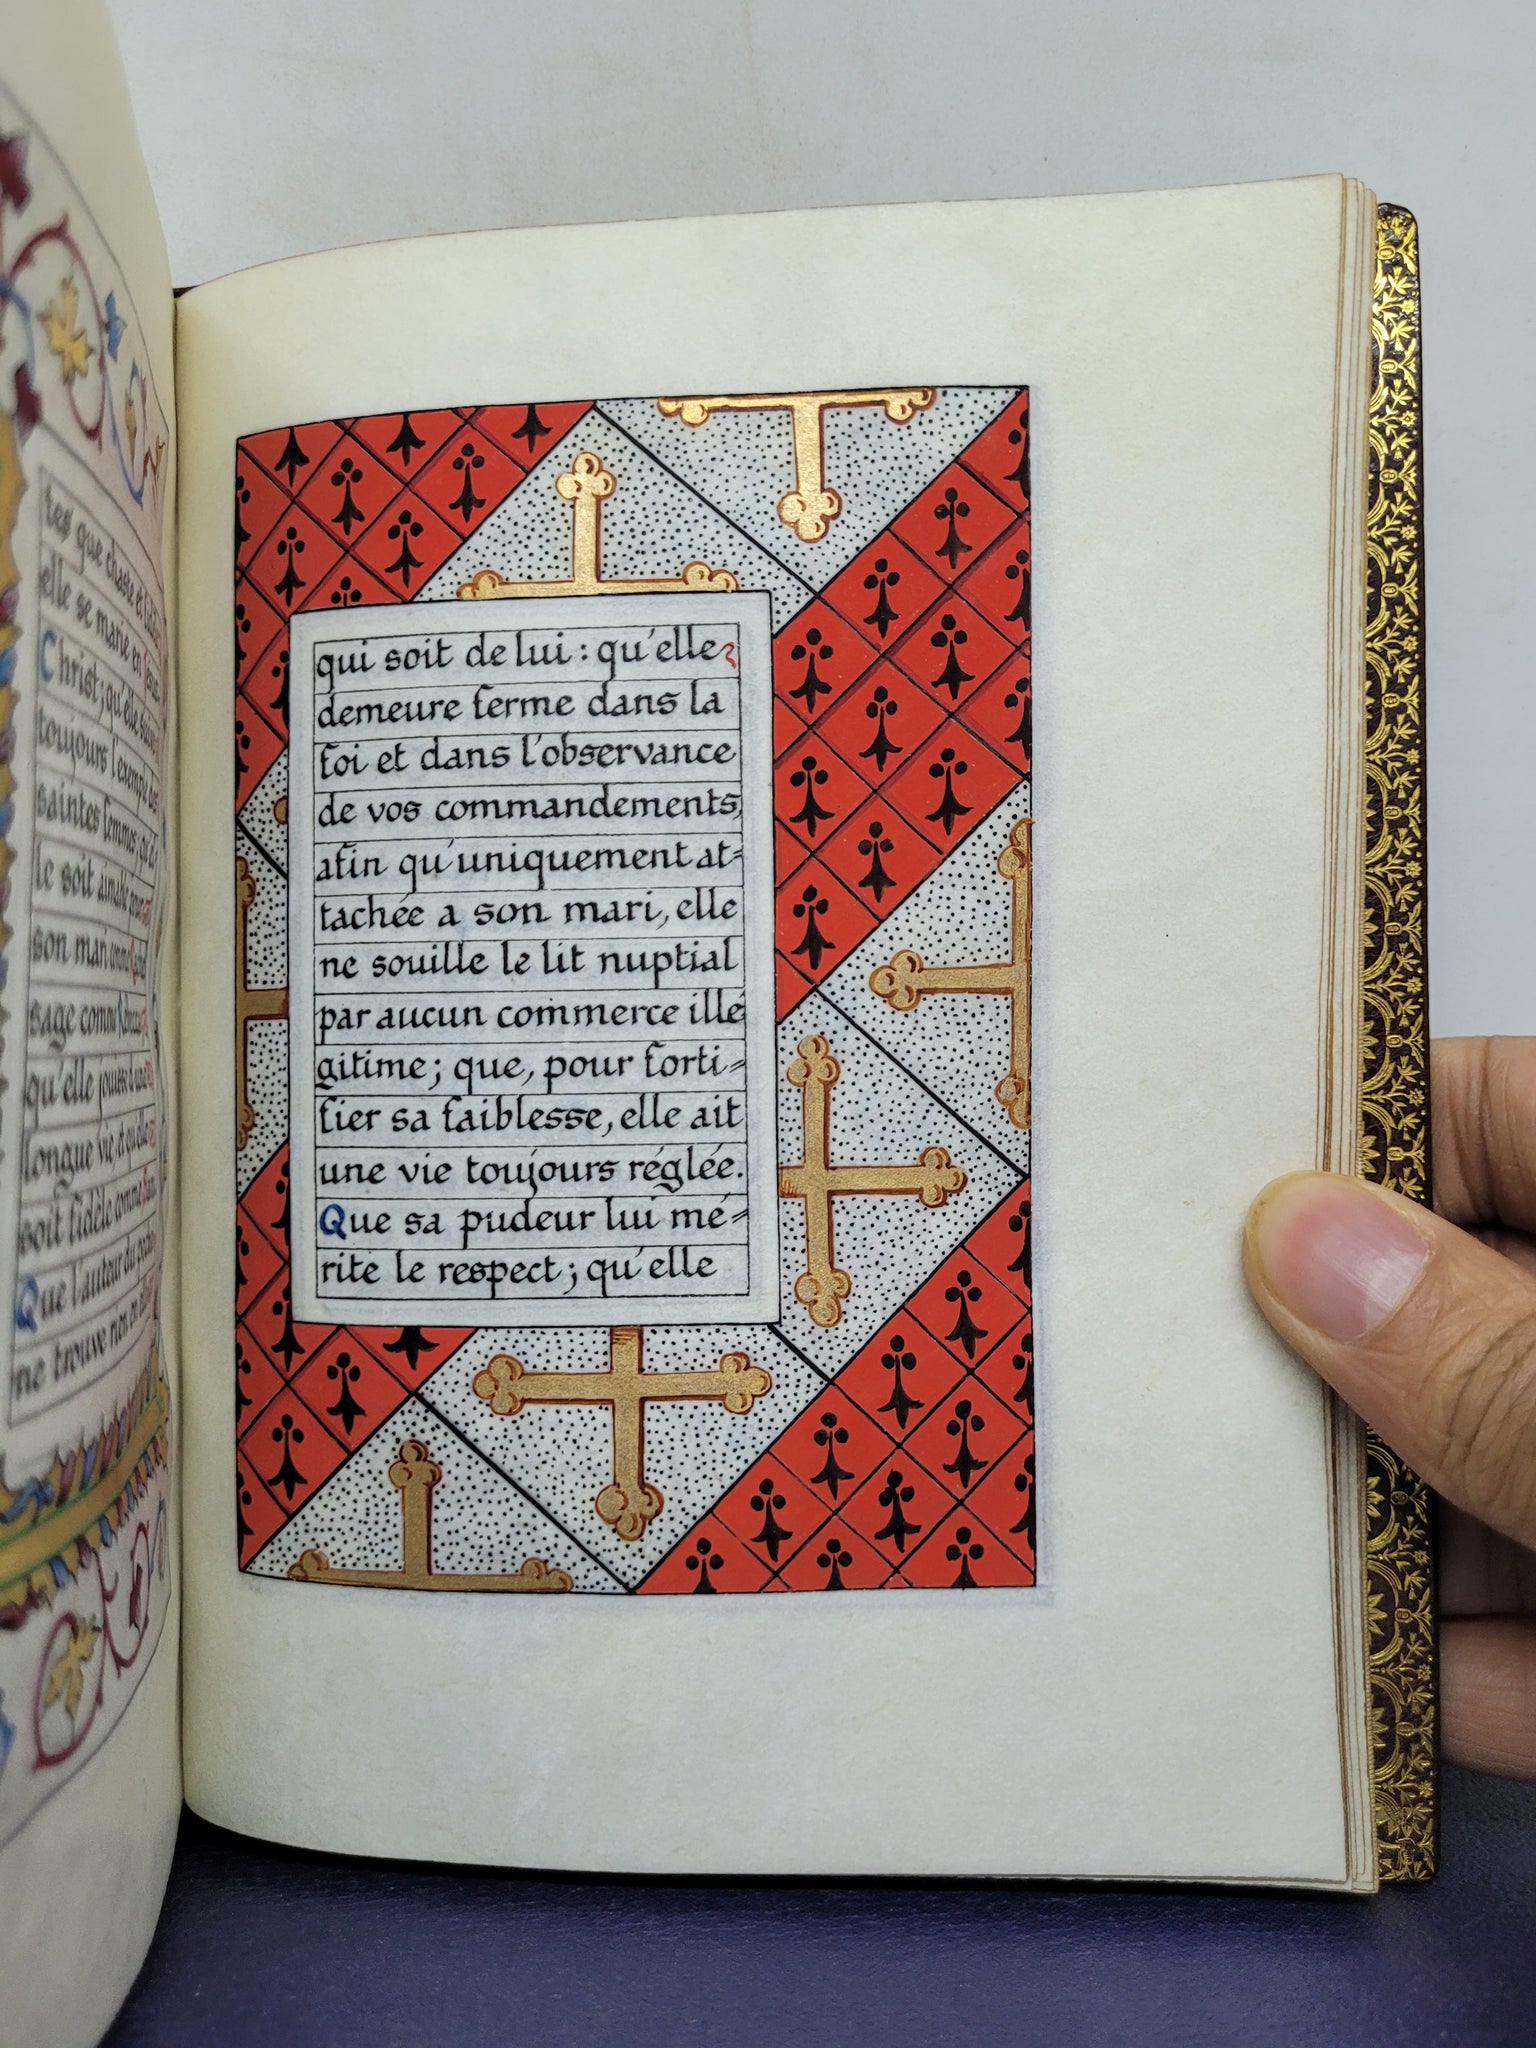 tes que chaste et fidèle
elle se marie en Jésus-
Christ; qu'elle suive
toujours l'exemple des
saintes femmes; qu'el
le soit aimable pour
son mari comme Rachel
sage comme Rébecca
qu'elle jouisse d'une
longue vie, et qu'elle
soit fidèle comme Sara
Que l'auteur du péché
ne trouve rien en elle
qui soit de lui : qu'elle
demeure ferme dans la
foi et dans l'observance
de vos commandements,
afin qu'uniquement at=
tachée a son mari, elle
ne souille le lit nuptial
par aucun commerce illé
gitime; que, pour forti=
fier sa faiblesse, elle ait
une vie toujours réglée.
Que sa pudeur lui mé=
rite le respect; qu'elle